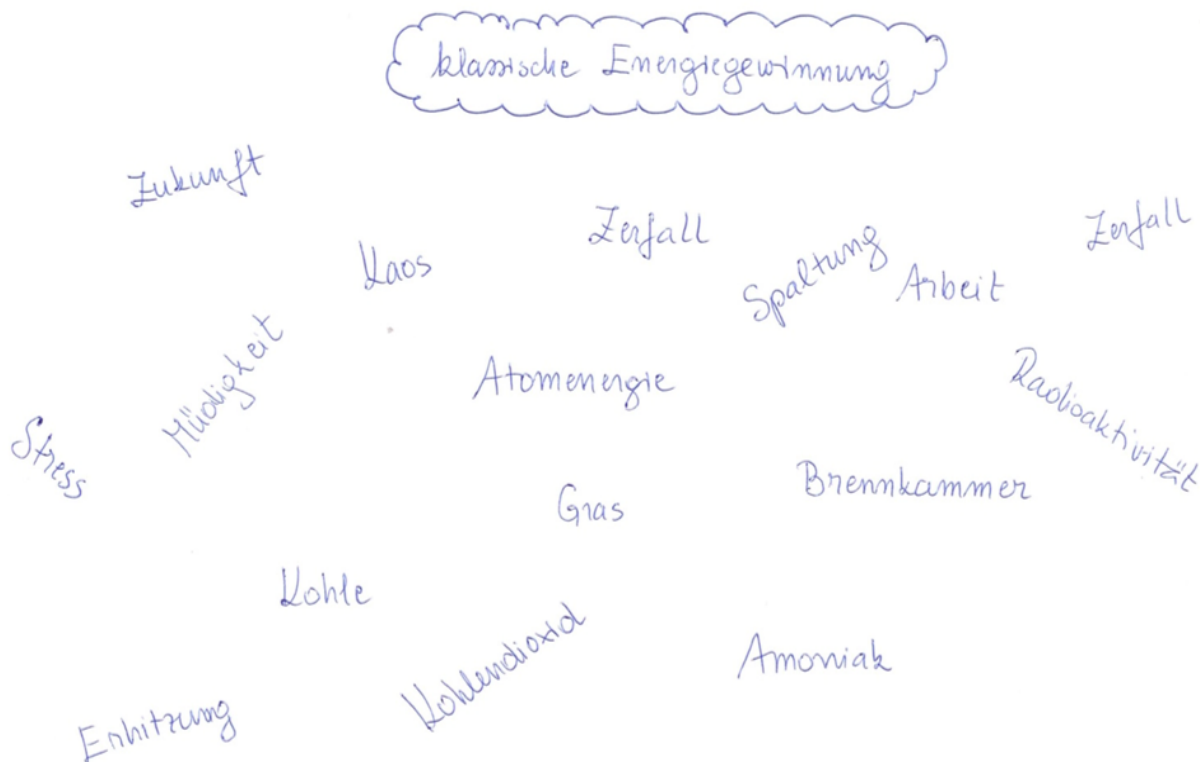 klassische Energiegewinnung
Zukunft
Zerfall
Zerfall
Kaos
Spaltung
Arbeit
Müdigkeit
Atomenergie
Radioaktivität
Stress
Gras
Brennkammer
Kohle
Kohlendioxid
Amoniak
Erhitzung